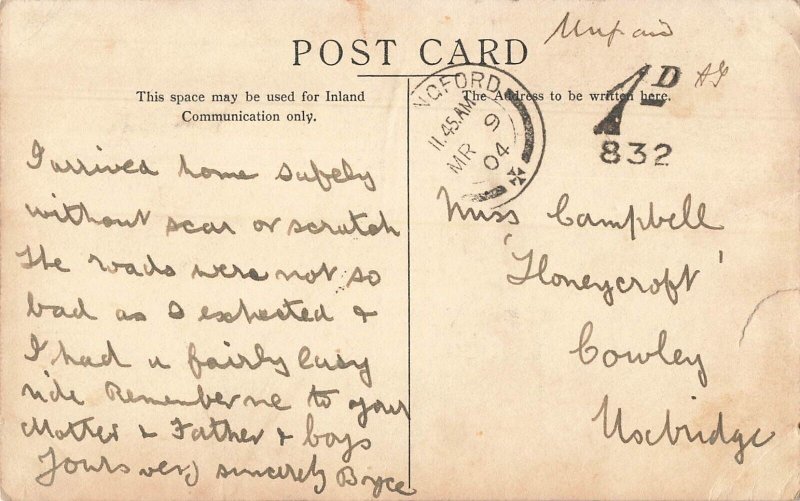 Unpaid
POST CARD
1D
832
NGFORD
11.45 AM
MR 9
04
This space may be used for Inland
Communication only.
The Address to be written here.
I arrived home safely
without scar or scratch
The roads were not so
bad as I expected &
I had a fairly easy
ride Remember me to your
Mother & Father & boys
Yours very sincerely Bryce
Miss Campbell
'Honeycroft'
Cowley
Uxbridge